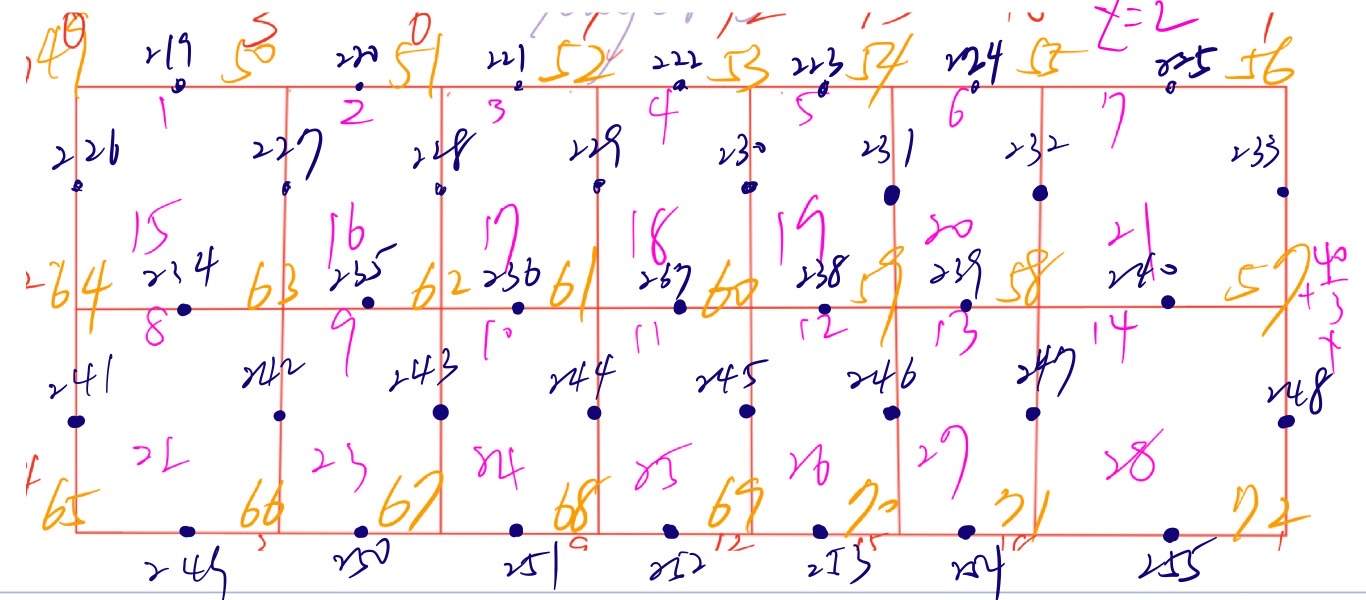 z=2
49 219 50 220 51 221 52 222 53 223 54 224 55 225 56
1 2 3 4 5 6 7
226 227 228 229 230 231 232 233
15 16 17 18 19 20 21
64 234 63 235 62 236 61 237 60 238 59 239 58 240 57
8 9 10 11 12 13 14
40
+3
241 242 243 244 245 246 247 248
22 23 24 25 26 27 28
65 66 67 68 69 70 71 72
3 9 12 15
249 250 251 252 253 254 255